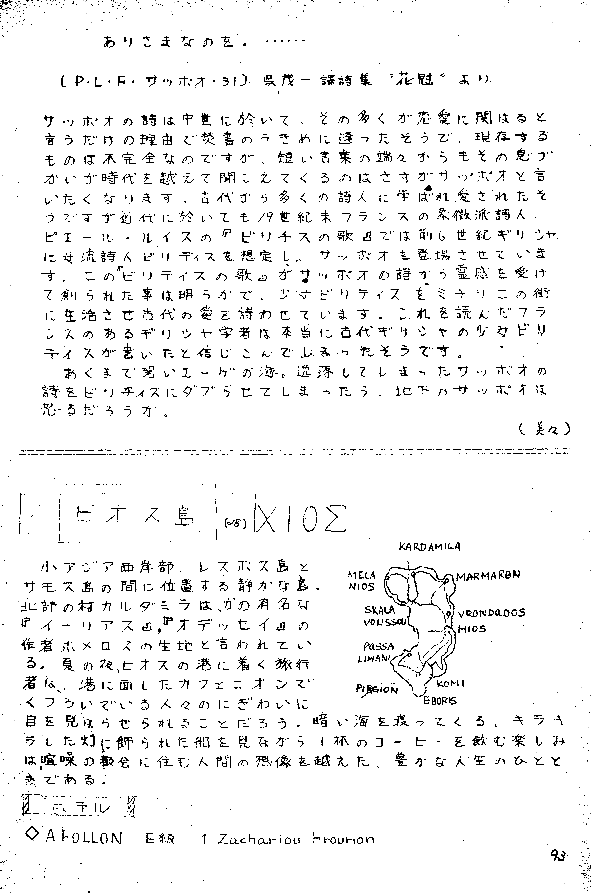 ありさまなのを。……
(P・L・F・サッポオ・31) 呉茂一 譯詩集 “花冠” より
サッポオの詩は中世に於いて、その多くが恋愛に関はると
言うだけの理由で焚書のうきめに逢ったそうで、現存する
ものは不完全なのですが、短い言葉の端々からもその息づ
かいが時代を越えて聞こえてくるのはさすがサッポオと言
いたくなります。古代から多くの詩人に学ばれ愛されたそ
うですが近代に於いても19世紀末フランスの象徴派詩人、
ピエール・ルイスの『ビリチスの歌』では前6世紀ギリシャ
に女流詩人ビリティスを想定し、サッポオを登場させていま
す。この『ビリティスの歌』がサッポオの詩から霊感を受け
て創られた事は明らかで、少女ビリティスをミチリニの街
に生活させ古代の愛を詩わせています。これを読んだフラ
ンスのあるギリシャ学者は本当に古代ギリシャの少女ビリ
ティスが書いたと信じこんでしまったそうです。
あくまで碧いエーゲの海。逍遥してしまったサッポオの
詩をビリティスにダブらせてしまったら、地下のサッポオは
怒るだろうか。
(美々)
ヒオス島 ΧΙΟΣ
小アジア西岸部、レスボス島と
サモス島の間に位置する静かな島。
北部の村カルダミラは、かの有名な
『イーリアス』、『オデッセイ』の
作者ホメロスの生地と言われてい
る。夏の夜、ヒオスの港に着く旅行
者は、港に面したカフェニオンで
くつろいでいる人々のにぎわいに
目を見はらせられることだろう。暗い海を渡ってくる、キラキ
ラした灯に飾られた船を見ながら1杯のコーヒーを飲む楽しみ
は、喧噪の都会に住む人間の想像を越えた、豊かな人生のひとと
きである。
KARDAMILA
MELA
NIOS
MARMARON
SKALA
VOLISSOU
VRONDADOS
HIOS
PASSA
LIMANI
PIRGION
KOMI
EBORIS
ホテル
◇APOLLON E級 1 Zachariou Frourion
93